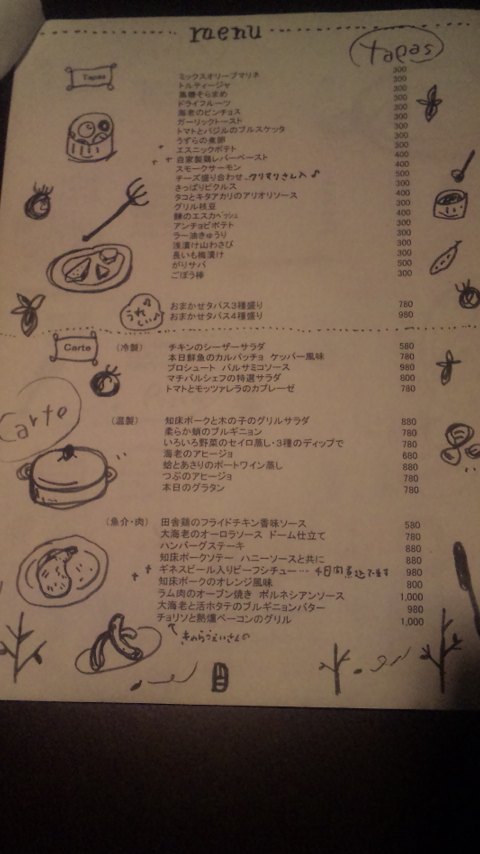 menu
Tapas
Tapas
ミックスオリーブマリネ 300
トルティージャ 300
黒糖そらまめ 300
ドライフルーツ 300
海老のピンチョス 300
ガーリックトースト 300
トマトとバジルのブルスケッタ 300
うずらの燻卵 300
エスニックポテト 300
自家製鶏レバーペースト 400
スモークサーモン 400
チーズ盛り合わせ 500
さっぱりピクルス 300
タコとキタアカリのアリオリソース 400
グリル枝豆 300
鰊のエスカベッシュ 400
アンチョビポテト 300
ラー油きゅうり 300
浅漬け山わさび 300
長いも梅漬け 300
がりサバ 500
ごぼう棒 300
うれしい♪
おまかせタパス3種盛り 780
おまかせタパス4種盛り 980
Carte
(冷製)
チキンのシーザーサラダ 580
本日鮮魚のカルパッチョ ケッパー風味 780
プロシュート バルサミコソース 980
マチバルシェフの特選サラダ 600
トマトとモッツァレラのカプレーゼ 780
Carte
(温製)
知床ポークと木の子のグリルサラダ 880
柔らか蛸のブルギニョン 780
いろいろ野菜のセイロ蒸し・3種のディップで 780
海老のアヒージョ 680
蛤とあさりのポートワイン蒸し 880
つぶのアヒージョ 780
本日のグラタン 780
(魚介・肉)
田舎鶏のフライドチキン香味ソース 580
大海老のオーロラソース ドーム仕立て 780
ハンバーグステーキ 880
知床ポークソテー ハニーソースと共に 880
ギネスビール入りビーフシチュー… 4日間煮込でます 980
知床ポークのオレンジ風味 800
ラム肉のオーブン焼き ポルネシアンソース 1,000
大海老と活ホタテのブルギニョンバター 980
チョリソと熱燻ベーコンのグリル 1,000